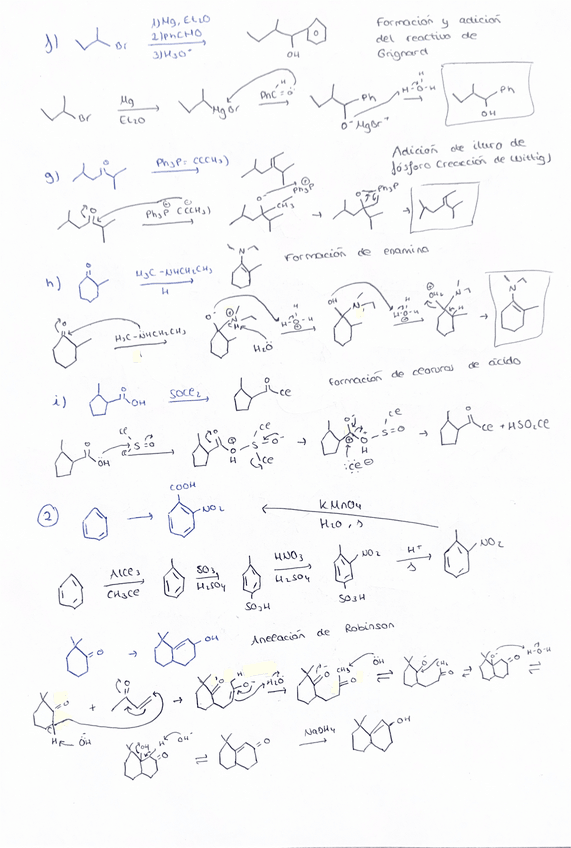 f) Br 1) Mg, Et₂O
2) PhCHO
3) H₃O⁺
OH
Formación y adición
del reactivo de
Grignard
Br Mg
Et₂O
MgBr PhC H O
Ph
O⁻ MgBr⁺
H-O-H H
Ph
OH
g) O Ph₃P=C(CH₃)
Adición de iluro de
fósforo (reacción de Wittig)
O Ph₃P C(CH₃)
O⁻ Ph₃P CH₃
O PPh₃
h) O H₃C-NHCH₂CH₃
H
N
Formación de enamina
O H₃C-NHCH₂CH₃
O⁻ N H H₂O
H-O-H H
OH N
H-O-H H
OH₂ N H
N
i) O OH SOCl₂ O Cl
Formación de cloruros de ácido
O OH Cl S=O Cl
O O H S O⁻ Cl Cl
O O H S=O Cl
Cl
O Cl + HSO₂Cl
2 COOH NO₂
KMnO₄
H₂O, Δ
AlCl₃
CH₃Cl
SO₃
H₂SO₄
SO₃H
HNO₃
H₂SO₄
NO₂
SO₃H
H⁺
Δ
NO₂
O OH
Anelación de Robinson
O + O H OH
H₂O
O CH₃ OH
O CH₃
O⁻ O H-O-H
OH H OH⁻ O
O NaBH₄ OH